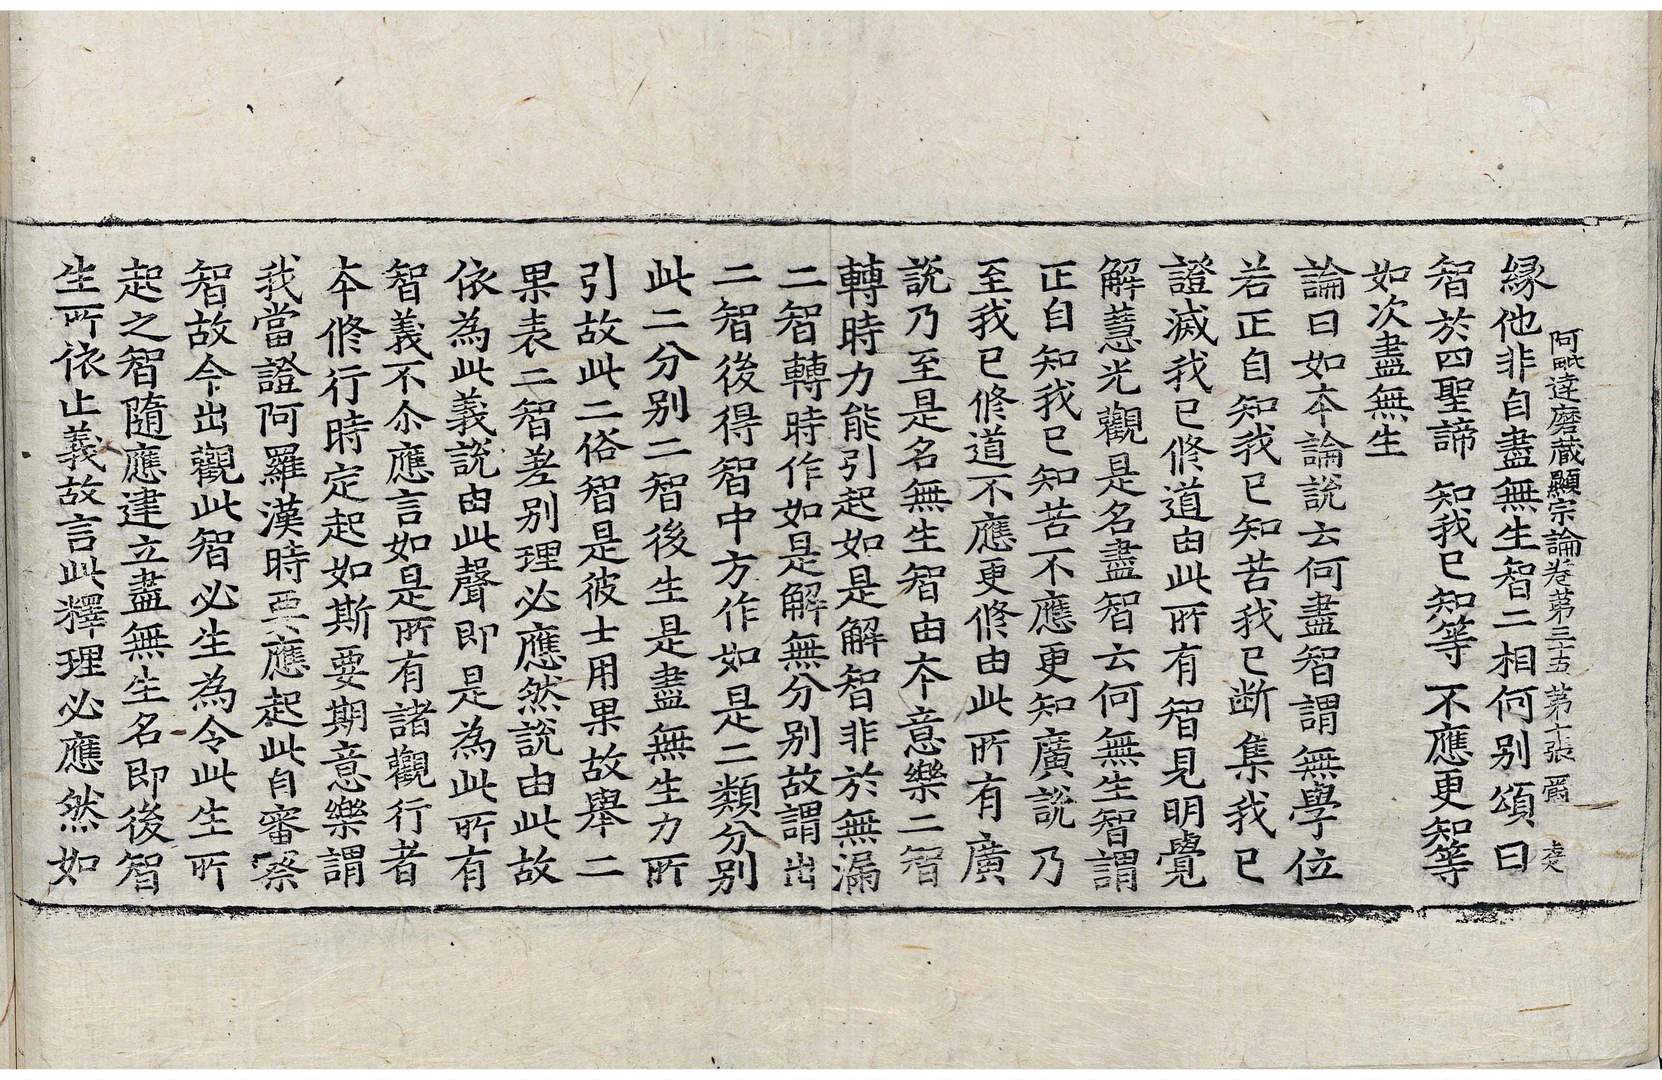 阿毗達磨藏顯宗論卷第三十五 第十張 爵
緣他非自盡無生智二相何別頌曰
智於四聖諦 知我已知等 不應更知等
如次盡無生
論曰如夲論說云何盡智謂無學位
若正自知我已知苦我已断集我已
證滅我已修道由此所有智見明覺
解慧光觀是名盡智云何無生智謂
正自知我已知苦不應更知廣說乃
至我已修道不應更修由此所有廣
說乃至是名無生智由夲意樂二智
轉時力能引起如是解智非於無漏
二智轉時作如是解無分别故謂出
二智後得智中方作如是二類分别
此二分别二智後生是盡無生力所
引故此二俗智是彼士用果故舉二
果表二智差别理必應然說由此故
依為此義說由此聲即是為此所有
智義不尒應言如是所有諸觀行者
夲修行時定起如斯要期意樂謂
我當證阿羅漢時要應起此自審察
智故今出觀此智必生為令此生所
起之智隨應建立盡無生名即後智
生所依止義故言此釋理必應然如